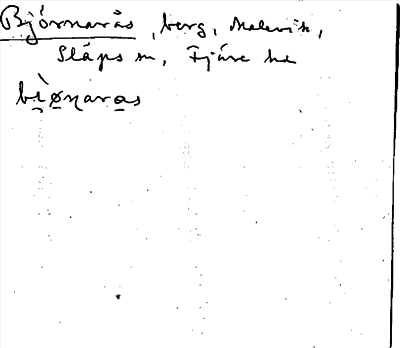 Björnarås, berg, Malevik,
Släps sn, Fjäre hd
bi̯ø̱n̯ara̱s